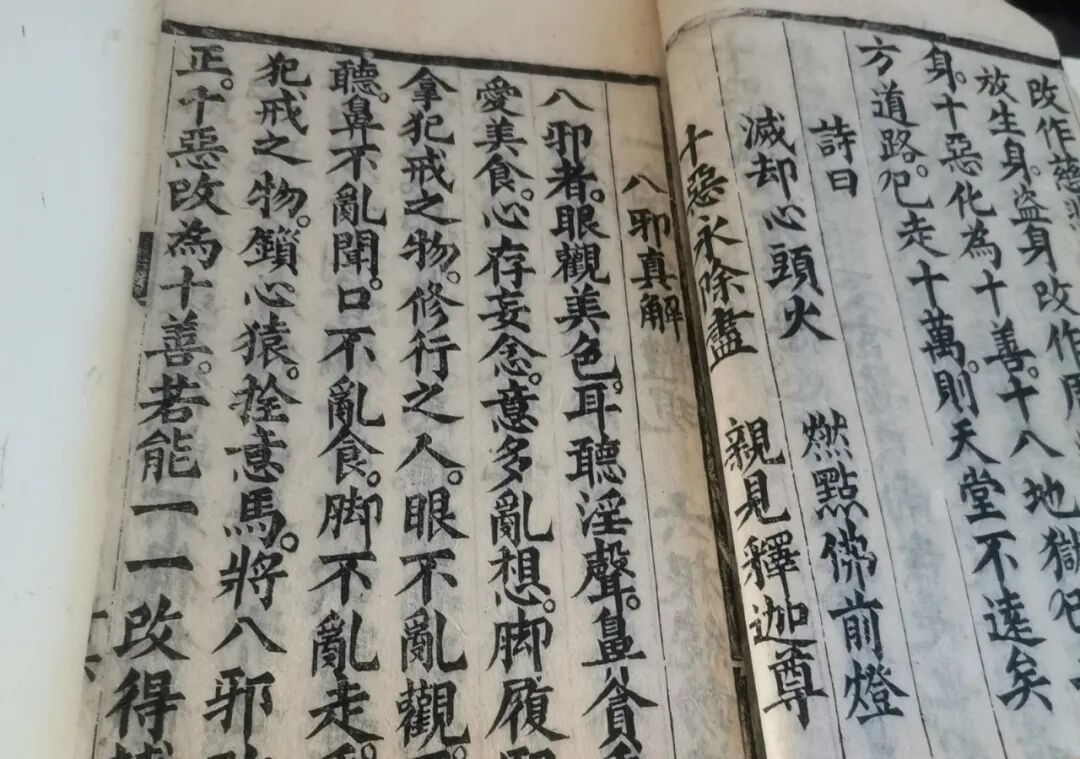 改作慈悲
放生身。盜身改作周
身。十惡化為十善。十八地獄
方道路。走十萬。則天堂不遠矣
詩曰
滅却心頭火　燃點佛前燈
十惡永除盡　親見釋迦尊
八邪真解
八邪者。眼觀美色。耳聽淫聲。鼻貪
愛美食。心存妄念。意多亂想。脚履邪
拿犯戒之物。修行之人。眼不亂觀。
聽。鼻不亂聞。口不亂食。脚不亂走。
犯戒之物。鎖心猿。拴意馬。將八邪改
正。十惡改為十善。若能一一改得